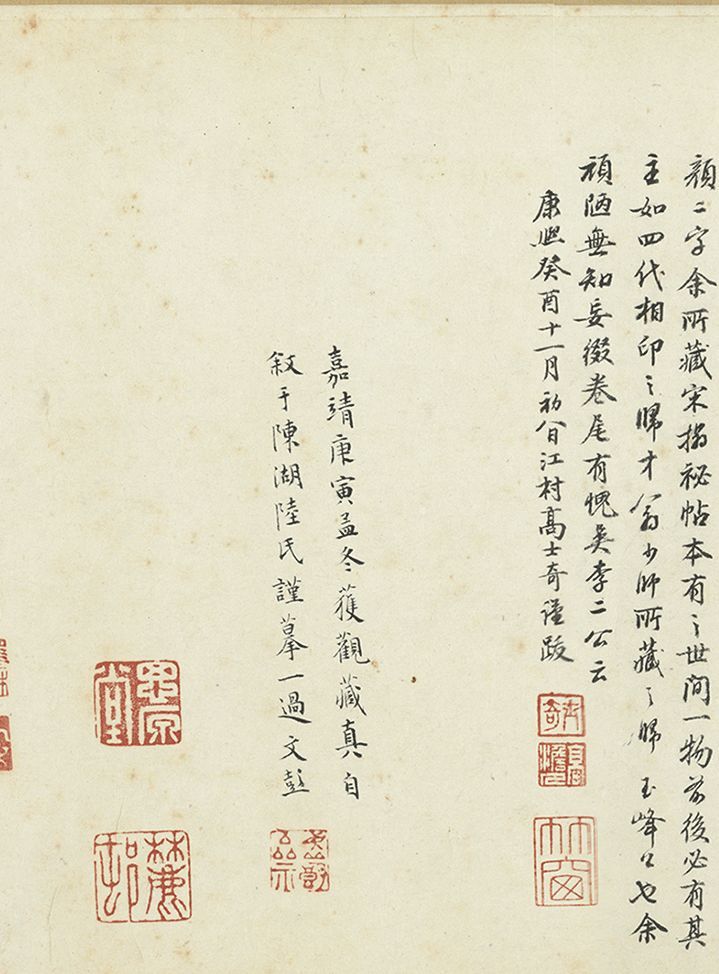 顏二字余所藏宋搨祕帖本有之世間一物前後必有其
主如四代相印之歸才翁少師所藏之歸 玉峰公也余
頑陋無知妄綴卷尾有愧吳李二公云
康熙癸酉十一月初八日江村高士奇謹跋
竹窗
嘉靖庚寅孟冬獲觀藏真自
敘于陳湖陸氏謹摹一過文彭